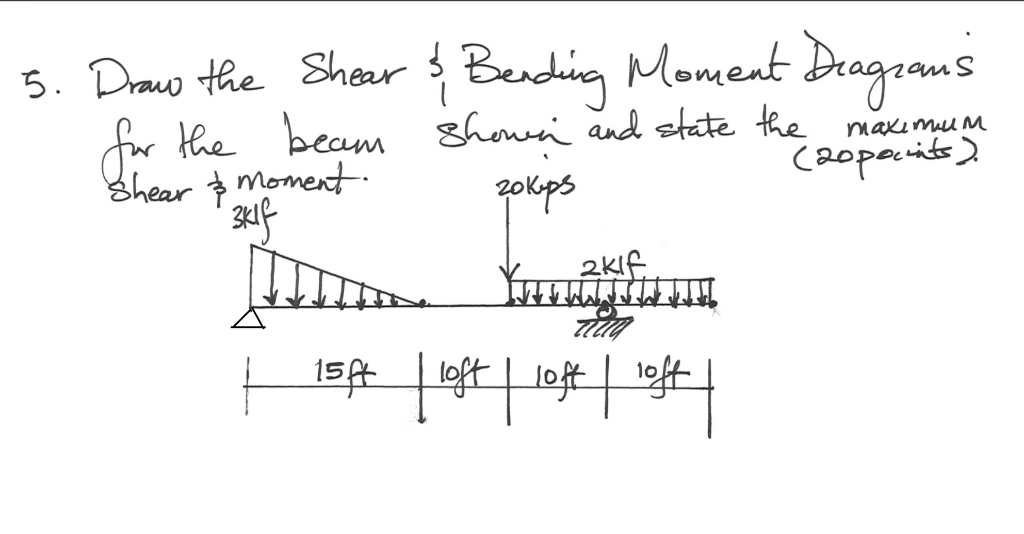 5. Draw the Shear & Bending Moment Diagrams
for the beam shown and state the maximum
shear & moment. (20 points).
20 Kips
3Klf
2Klf
15 ft 10ft 10ft 10ft